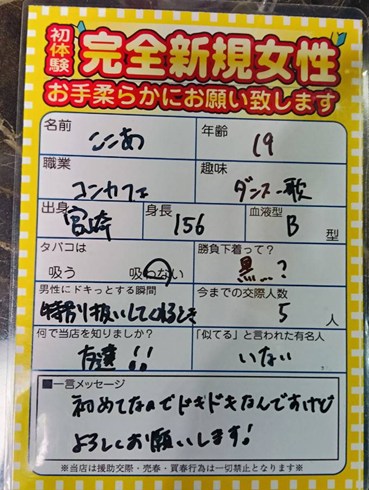 初体験 完全新規女性
お手柔らかにお願い致します
名前 ここあ 年齢 19
職業 コンカフェ 趣味 ダンス、歌
出身 宮崎 身長 156 血液型 B 型
タバコは 吸う 吸わない 勝負下着って? 黒…?
男性にドキっとする瞬間 特別扱いしてくれるとき 今までの交際人数 5 人
何で当店を知りましたか? 友達!! 「似てる」と言われた有名人 いない
■一言メッセージ
初めてなのでドキドキなんですけど
よろしくお願いします!
※当店は援助交際・売春・買春行為は一切禁止となります※